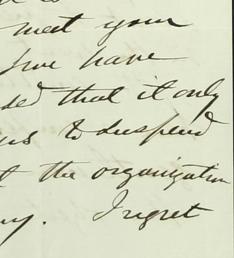 meet your
have
that it only
to suspend
the organization
I regret